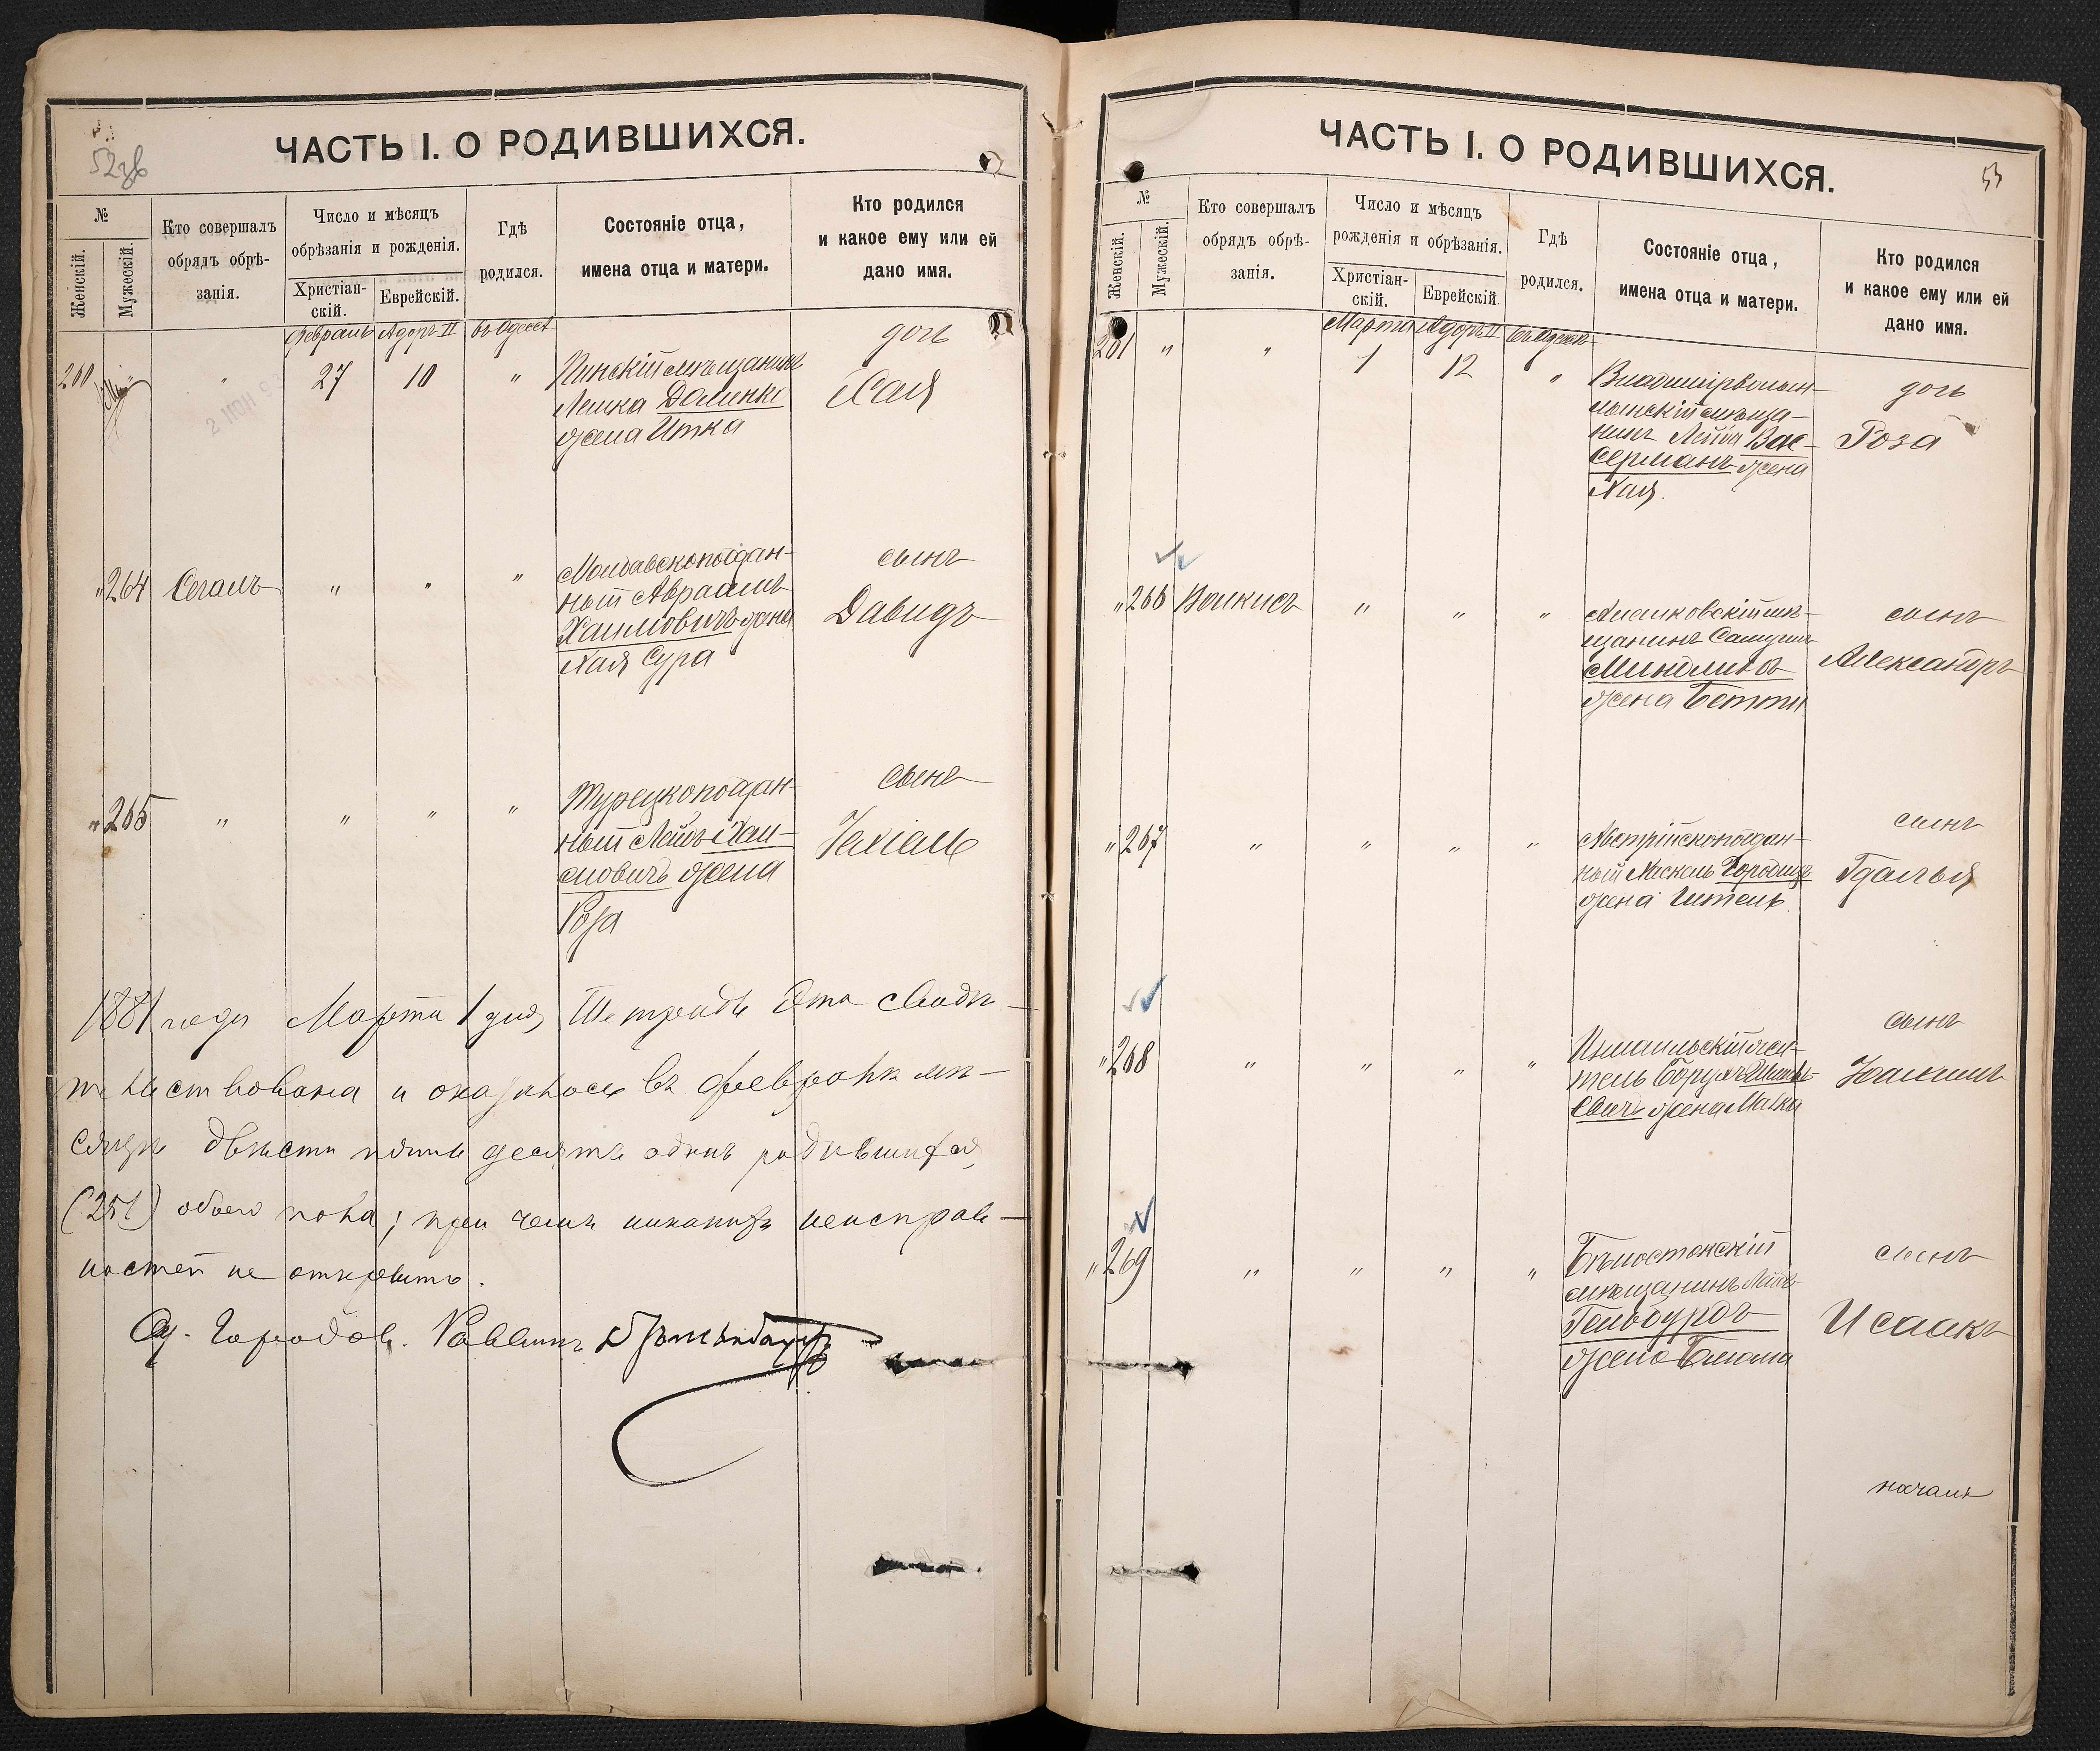 52об
ЧАСТЬ I. О РОДИВШИХСЯ.
№
Женскій.
Мужескій.
Кто совершалъ обрядъ обрѣ-
занія.
Число и мѣсяцъ
обрѣзанія и рожденія.
Христіан-
скій.
Еврейскій.
Гдѣ
родился.
Состояніе отца,
имена отца и матери.
Кто родился
и какое ему или ей
дано имя.
Февраль Адоръ II въ Одессѣ
200 " 27 10 "
Пинскій мѣщанинъ
Лейка
жена Итка
дочь
Хая
" 264 Сегалъ " " "
Молдавскоподдан-
ный Авраамъ
Хаимовичъ жена
Хая Сура
сынъ
Давидъ
" 265 " " " "
Турецкоподдан-
ный Лейбъ Хаи-
мовичъ жена
Роза
сынъ
Іехіель
1881 года Марта 1 дня, Тетрадь эта свидѣ-
тельствована и оказалось въ февралѣ мѣ-
сяцѣ двѣсти пятьдесятъ одинъ родившихся
(251) обоего пола; при чемъ никакихъ неисправ-
ностей не открыто.
Городов. Раввинъ
53
ЧАСТЬ I. О РОДИВШИХСЯ.
№
Женскій.
Мужескій.
Кто совершалъ
обрядъ обрѣ-
занія.
Число и мѣсяцъ
рожденія и обрѣзанія.
Христіан-
скій.
Еврейскій.
Гдѣ
родился.
Состояніе отца,
имена отца и матери.
Кто родился
и какое ему или ей
дано имя.
Марта Адоръ II въ Одессѣ
201 " " 1 12 "
мѣща-
нинъ Лейба Вас-
серманъ жена
Хая.
дочь
Роза
" 266 " " "
мѣ-
щанинъ Самуилъ
Миндлинъ
жена Бетти
сынъ
Александръ
" 267 " " " "
Австрійскоподдан-
ный Хаскель
жена
сынъ
Гдалья
" 268 " " " "
Измаильскій жи-
тель Борухъ
жена Малка
сынъ
" 269 " " " "
Бѣлостокскій
мѣщанинъ Лейбъ
Гельбурдъ
жена Блюма
сынъ
Исаакъ